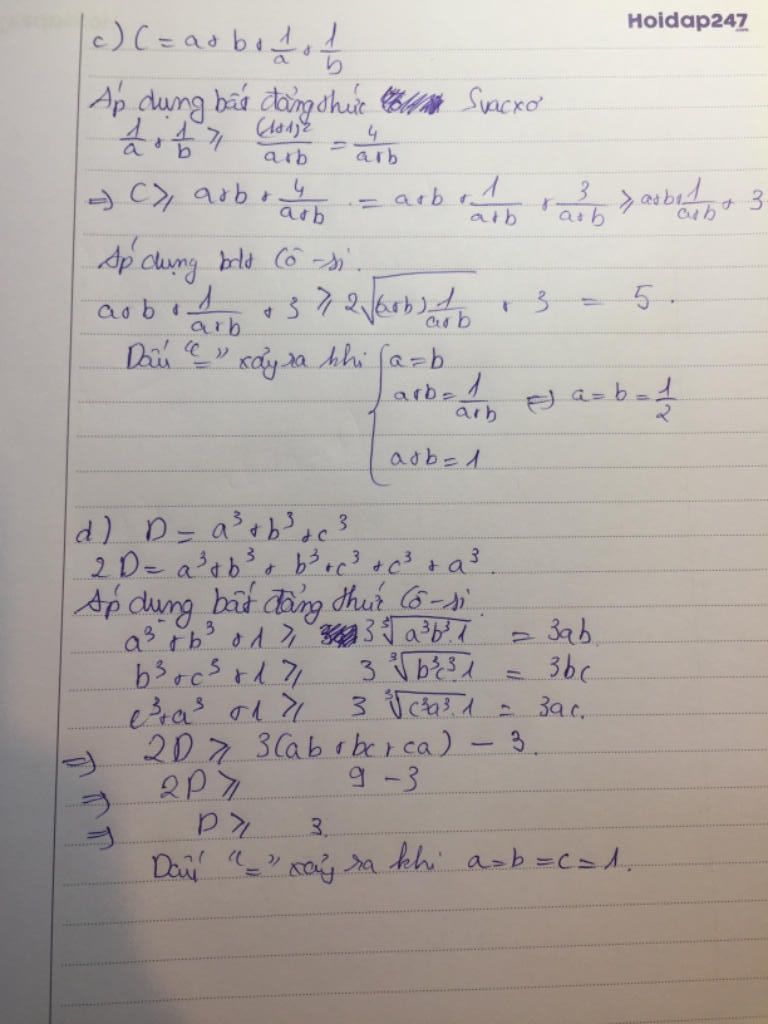 Hoidap247
c) C = a + b + 1/a + 1/b
Áp dụng bất đẳng thức Svacxơ
1/a + 1/b ⩾ (1+1)²/(a+b) = 4/(a+b)
=> C ⩾ a+b + 4/(a+b) = a+b + 1/(a+b) + 3/(a+b) ⩾ a+b+ 1/(a+b) + 3
Áp dụng bđt Cô-si.
a+b + 1/(a+b) + 3 ⩾ 2√((a+b) 1/(a+b)) + 3 = 5.
Dấu "=" xảy ra khi { a = b
a+b = 1/(a+b) <=> a = b = 1/2
a+b = 1
d) D = a³ + b³ + c³
2D = a³ + b³ + b³ + c³ + c³ + a³.
Áp dụng bất đẳng thức Cô-si
a³ + b³ + 1 ⩾ 3∛(a³b³.1) = 3ab
b³ + c³ + 1 ⩾ 3∛(b³c³.1) = 3bc
c³ + a³ + 1 ⩾ 3∛(c³a³.1) = 3ac.
=> 2D ⩾ 3(ab + bc + ca) - 3.
=> 2D ⩾ 9 - 3
=> D ⩾ 3.
Dấu "=" xảy ra khi a = b = c = 1.